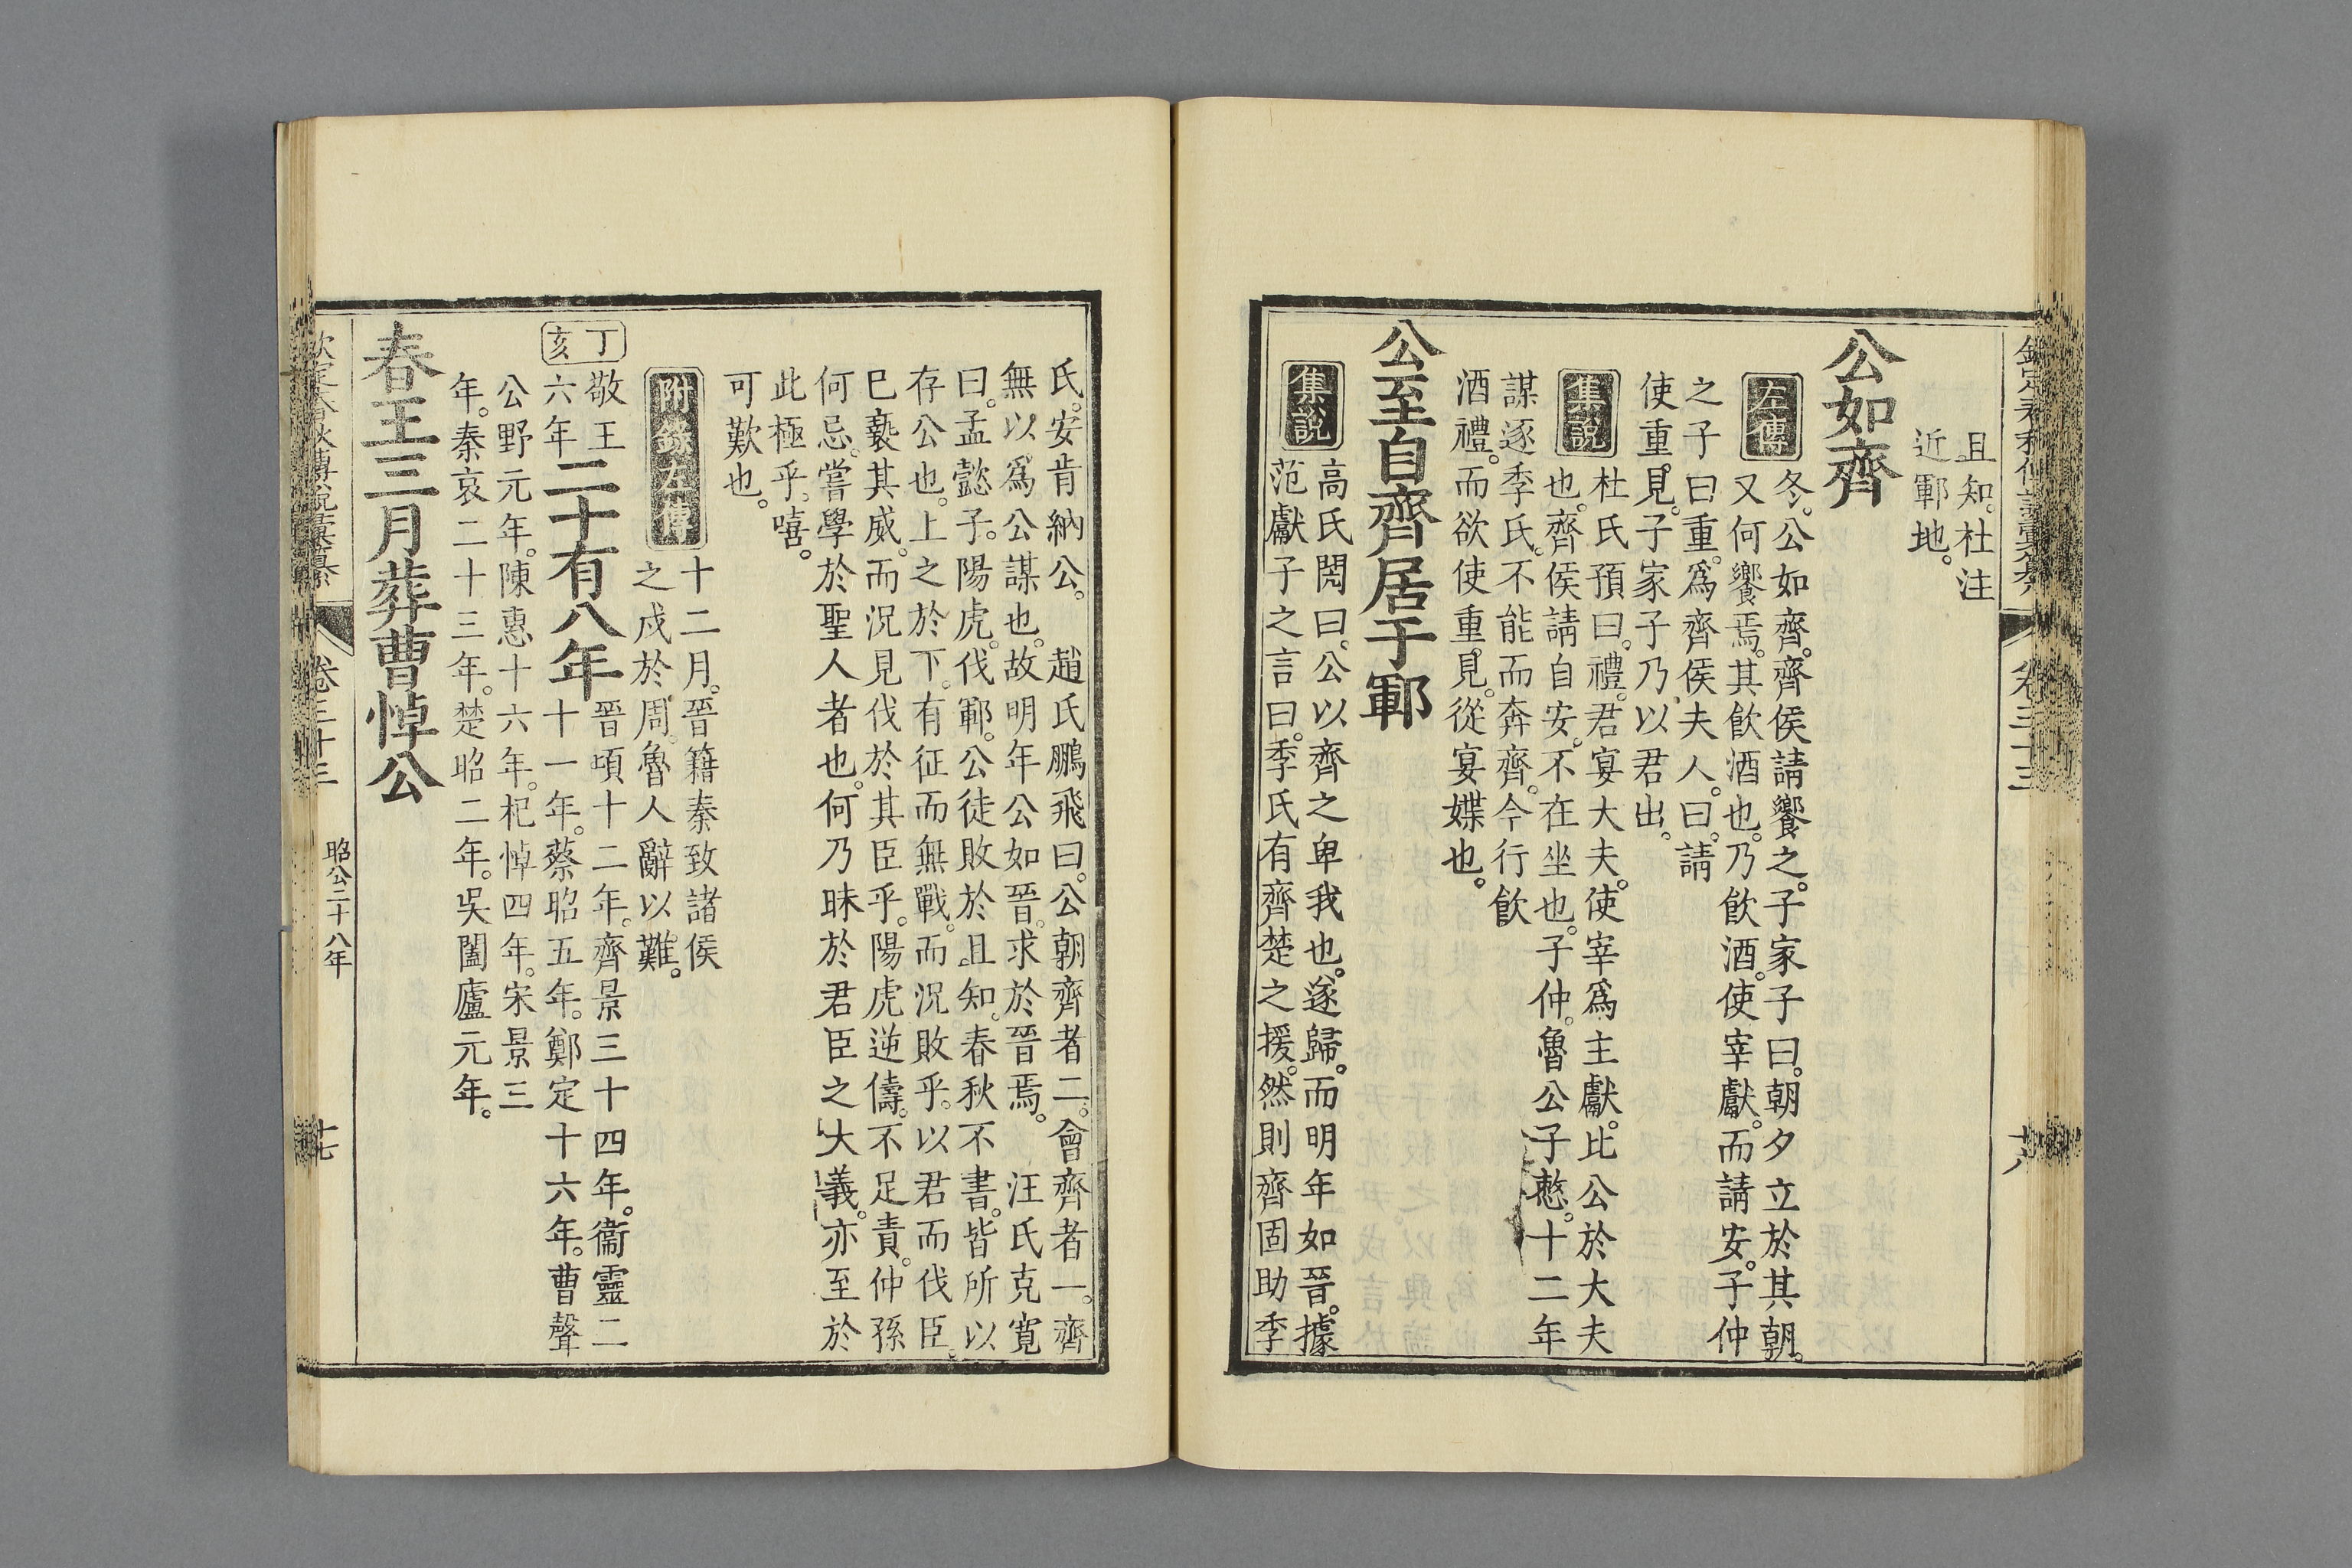 且知。杜注
近鄆地。
公如齊
左傳
冬。公如齊。齊侯請饗之。子家子曰。朝夕立於其朝。
又何饗焉。其飮酒也。乃飮酒。使宰獻。而請安。子仲
之子曰重。爲齊侯夫人。曰。請
使重見。子家子乃以君出。
集說
杜氏預曰。禮。君宴大夫。使宰爲主獻。比公於大夫
也。齊侯請自安。不在坐也。子仲。魯公子憖。十二年
謀逐季氏。不能而奔齊。今行飮
酒禮。而欲使重見。從宴媟也。
公至自齊居于鄆
集說
高氏閌曰。公以齊之卑我也。遂歸。而明年如晉。據
范獻子之言曰。季氏有齊楚之援。然則齊固助季
氏。安肯納公。　趙氏鵬飛曰。公朝齊者二。會齊者一。齊
無以爲公謀也。故明年公如晉。求於晉焉。　汪氏克寬
曰。孟懿子。陽虎。伐鄆。公徒敗於且知。春秋不書。皆所以
存公也。上之於下。有征而無戰。而況敗乎。以君而伐臣。
已褻其威。而況見伐於其臣乎。陽虎逆儔。不足責。仲孫
何忌。嘗學於聖人者也。何乃昧於君臣之大義。亦至於
此極乎。嘻。
可歎也。
附錄左傳
十二月。晉籍秦致諸侯
之戍於周。魯人辭以難。
丁亥
敬王六年
二十有八年
晉頃十二年。齊景三十四年。衞靈二
十一年。蔡昭五年。鄭定十六年。曹聲
公野元年。陳惠十六年。杞悼四年。宋景三
年。秦哀二十三年。楚昭二年。吳闔廬元年。
春王三月葬曹悼公
卷三十三
昭公二十八年
十七